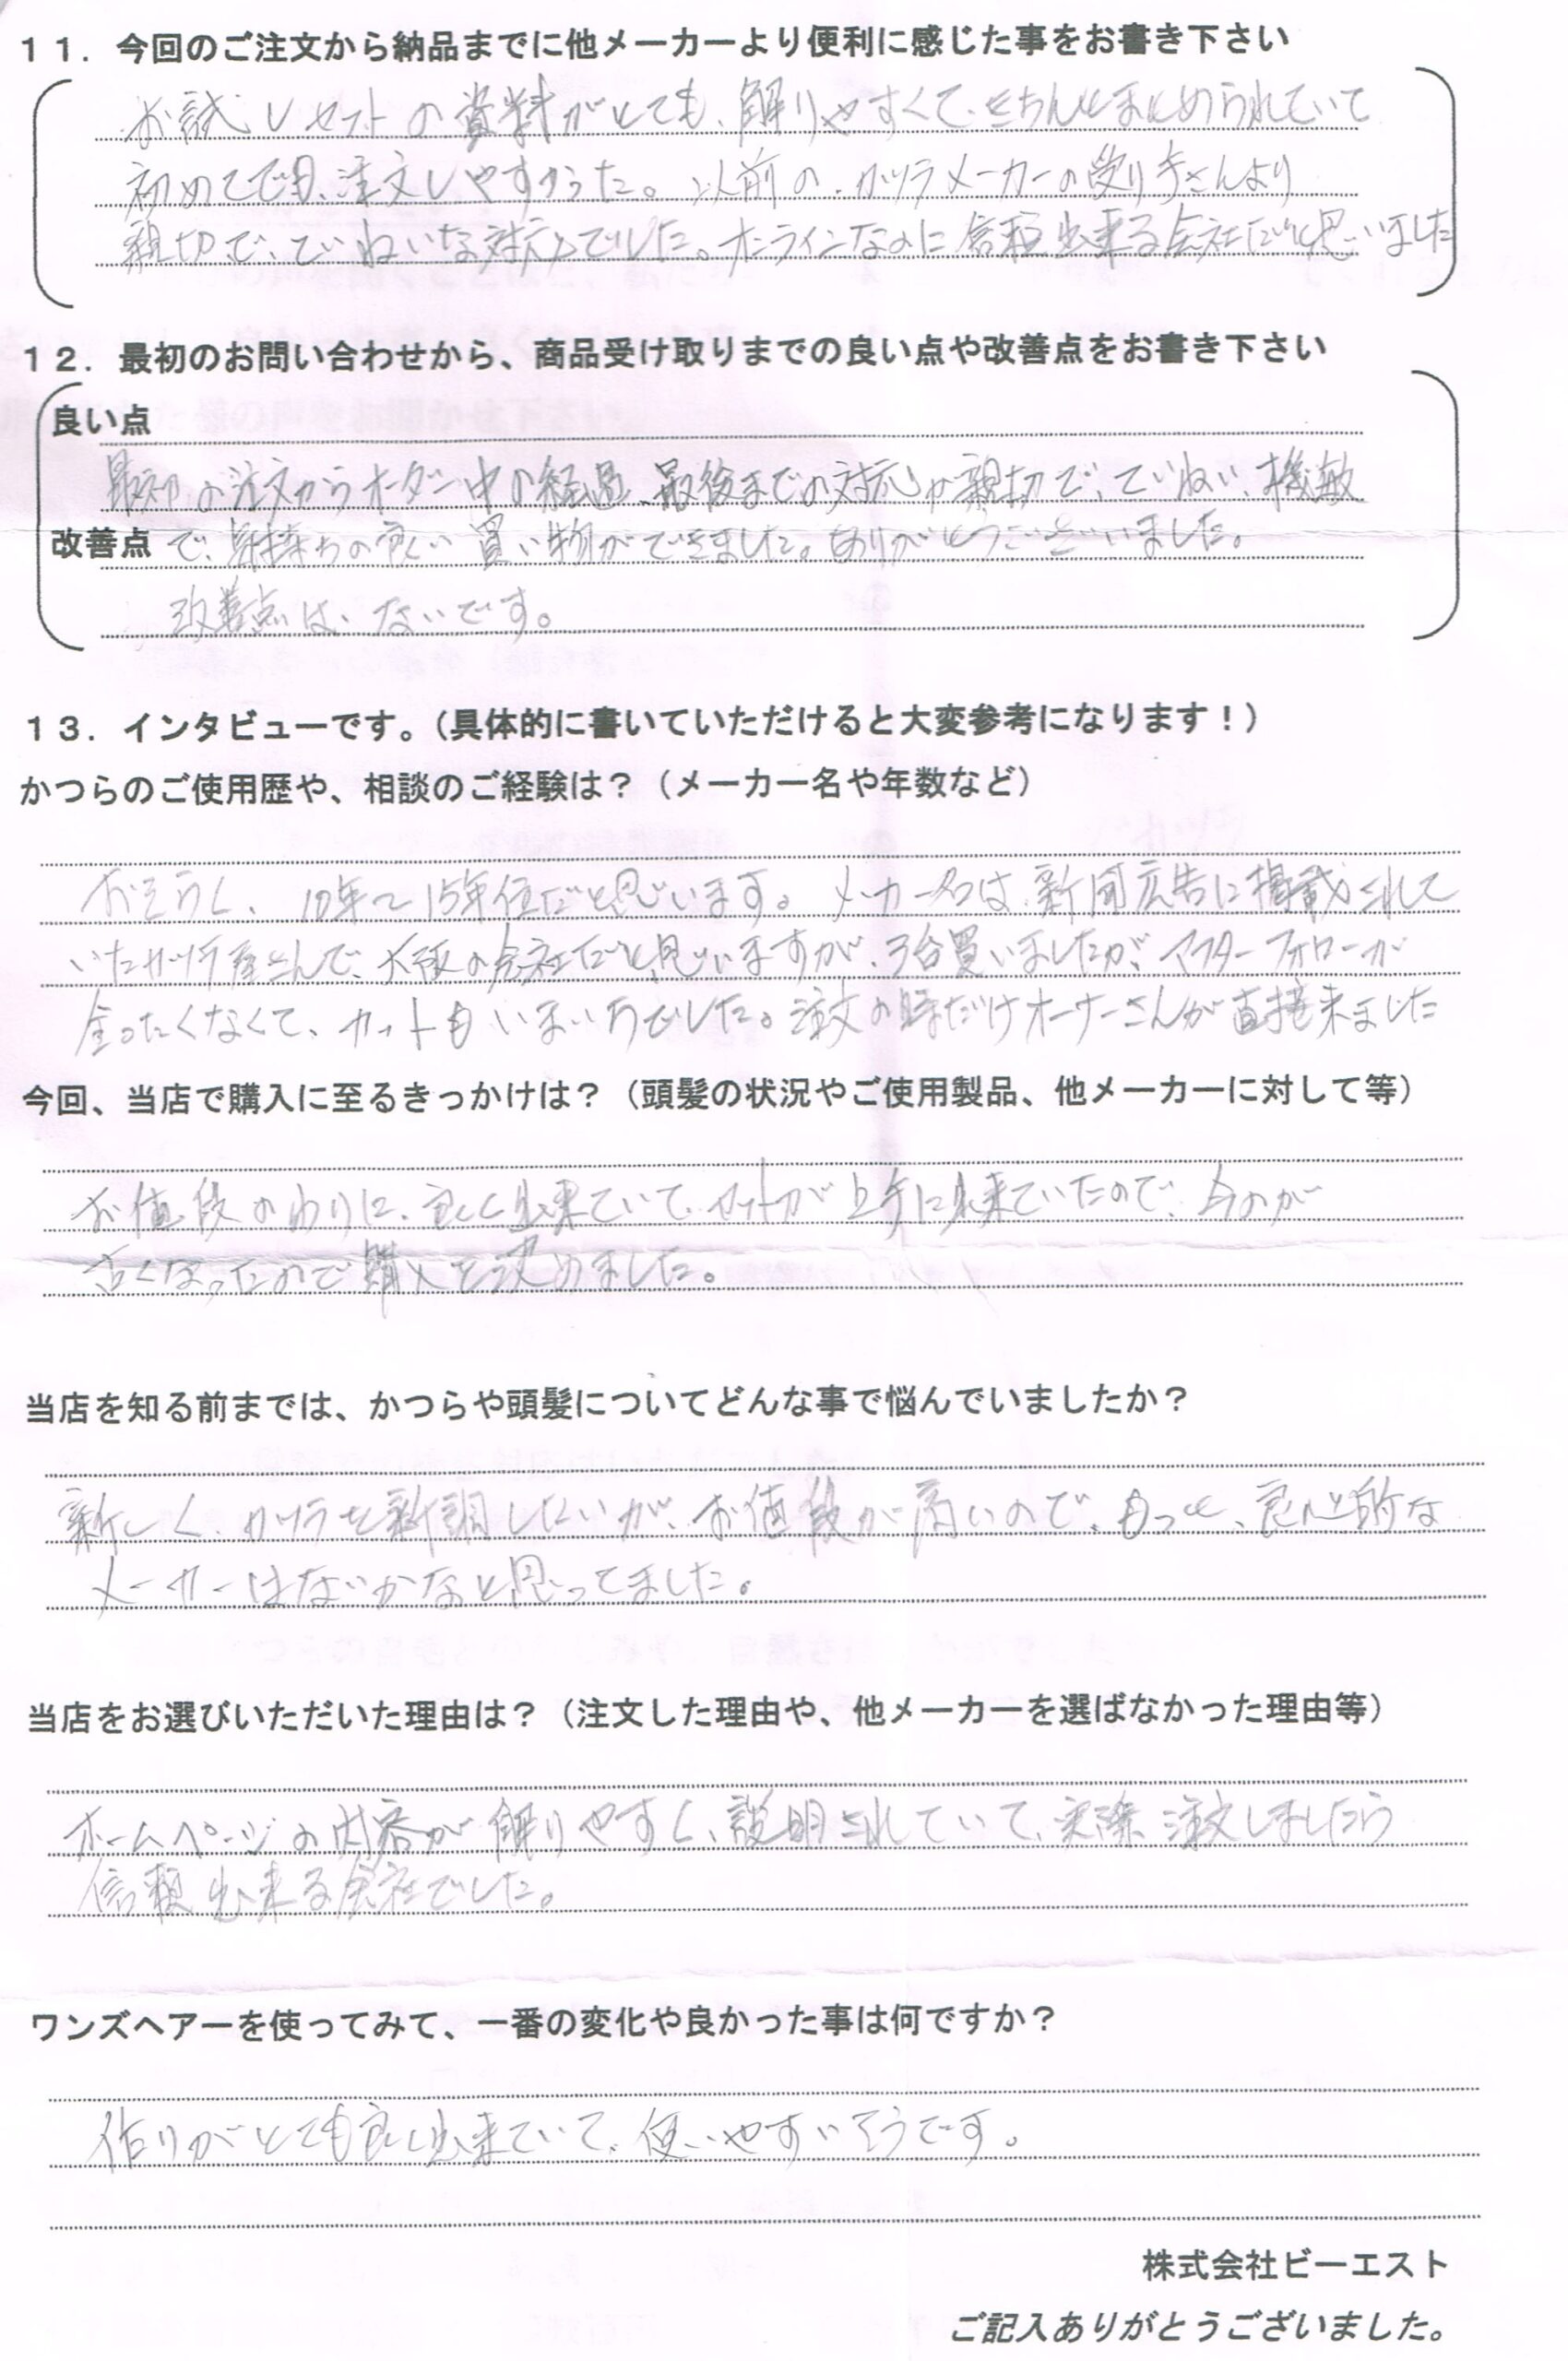 11．今回のご注文から納品までに他メーカーより便利に感じた事をお書き下さい
お試しセットの資料がとても、解りやすくて、きちんとまとめられていて
初めてでも、注文しやすかった。以前の、カツラメーカーの受り手さんより
親切で、ていねいな対応でした。オンラインなのに信頼出来る会社だと思いました
12．最初のお問い合わせから、商品受け取りまでの良い点や改善点をお書き下さい
良い点
最初の注文からオーダー中の経過、最後までの対応が親切で、ていねい、機敏
改善点 で、気持ちの良い買い物ができました。ありがとうございました。
改善点は、ないです。
13．インタビューです。（具体的に書いていただけると大変参考になります！）
かつらのご使用歴や、相談のご経験は？（メーカー名や年数など）
おそらく、10年～15年位だと思います。メーカー名は、新聞広告に掲載されて
いたカツラ屋さんで、大阪の会社だと思いますが、3台買いましたが、アフターフォローが
全ったくなくて、カットもいまいちでした。注文の時だけオーナーさんが直接来ました
今回、当店で購入に至るきっかけは？（頭髪の状況やご使用製品、他メーカーに対して等）
お値段のわりに、良く出来ていて、セットが上手に出来ていたので、今のが
古くなったので購入を決めました。
当店を知る前までは、かつらや頭髪についてどんな事で悩んでいましたか？
新しく、カツラを新調したいが、お値段が高いので、もっと、良心的な
メーカーはないかなと思ってました。
当店をお選びいただいた理由は？（注文した理由や、他メーカーを選ばなかった理由等）
ホームページの内容が解りやすく、説明されていて、実際注文しましたら
信頼出来る会社でした。
ワンズヘアーを使ってみて、一番の変化や良かった事は何ですか？
作りがとても良く出来ていて、使いやすいそうです。
株式会社ビーエスト
ご記入ありがとうございました。